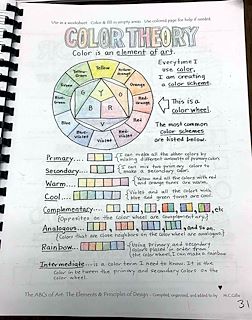 Use as a worksheet. Color & fill in empty areas. Use colored page for help if needed.
COLOR THEORY
Color is an element of art.
Everytime I
use color,
I am creating
a color scheme.
This is a
color wheel
The most common
color schemes
are listed below.
Yellow
Yellow-Green
Yellow-Orange
Green
Orange
Blue-Green
Red-Orange
Blue
Red
Blue-Violet
Red-Violet
Violet
Y
G
O
B
R
V
Primary....
I can make all the other colors by
mixing different amounts of primary colors.
Secondary....
I can mix two primary colors to
make a secondary color.
Warm....
Yellow and all the colors with red
and orange tones are warm.
Cool....
Violet and all the colors with
blue and green tones are cool.
Complementary....
, etc
(Opposites on the color wheel are Complementary)
Analogous....
and so on.
(Colors that are close neighbors on the color wheel are analogous)
Rainbow....
Using primary and secondary
colors placed in order from
the color wheel, I can make a rainbow.
Intermediate is a color term I need to know. It is the
color in between the primary and secondary colors on the
color wheel.
The ABCs of Art: The Elements & Principles of Design - Compiled, organized, and added to by
31